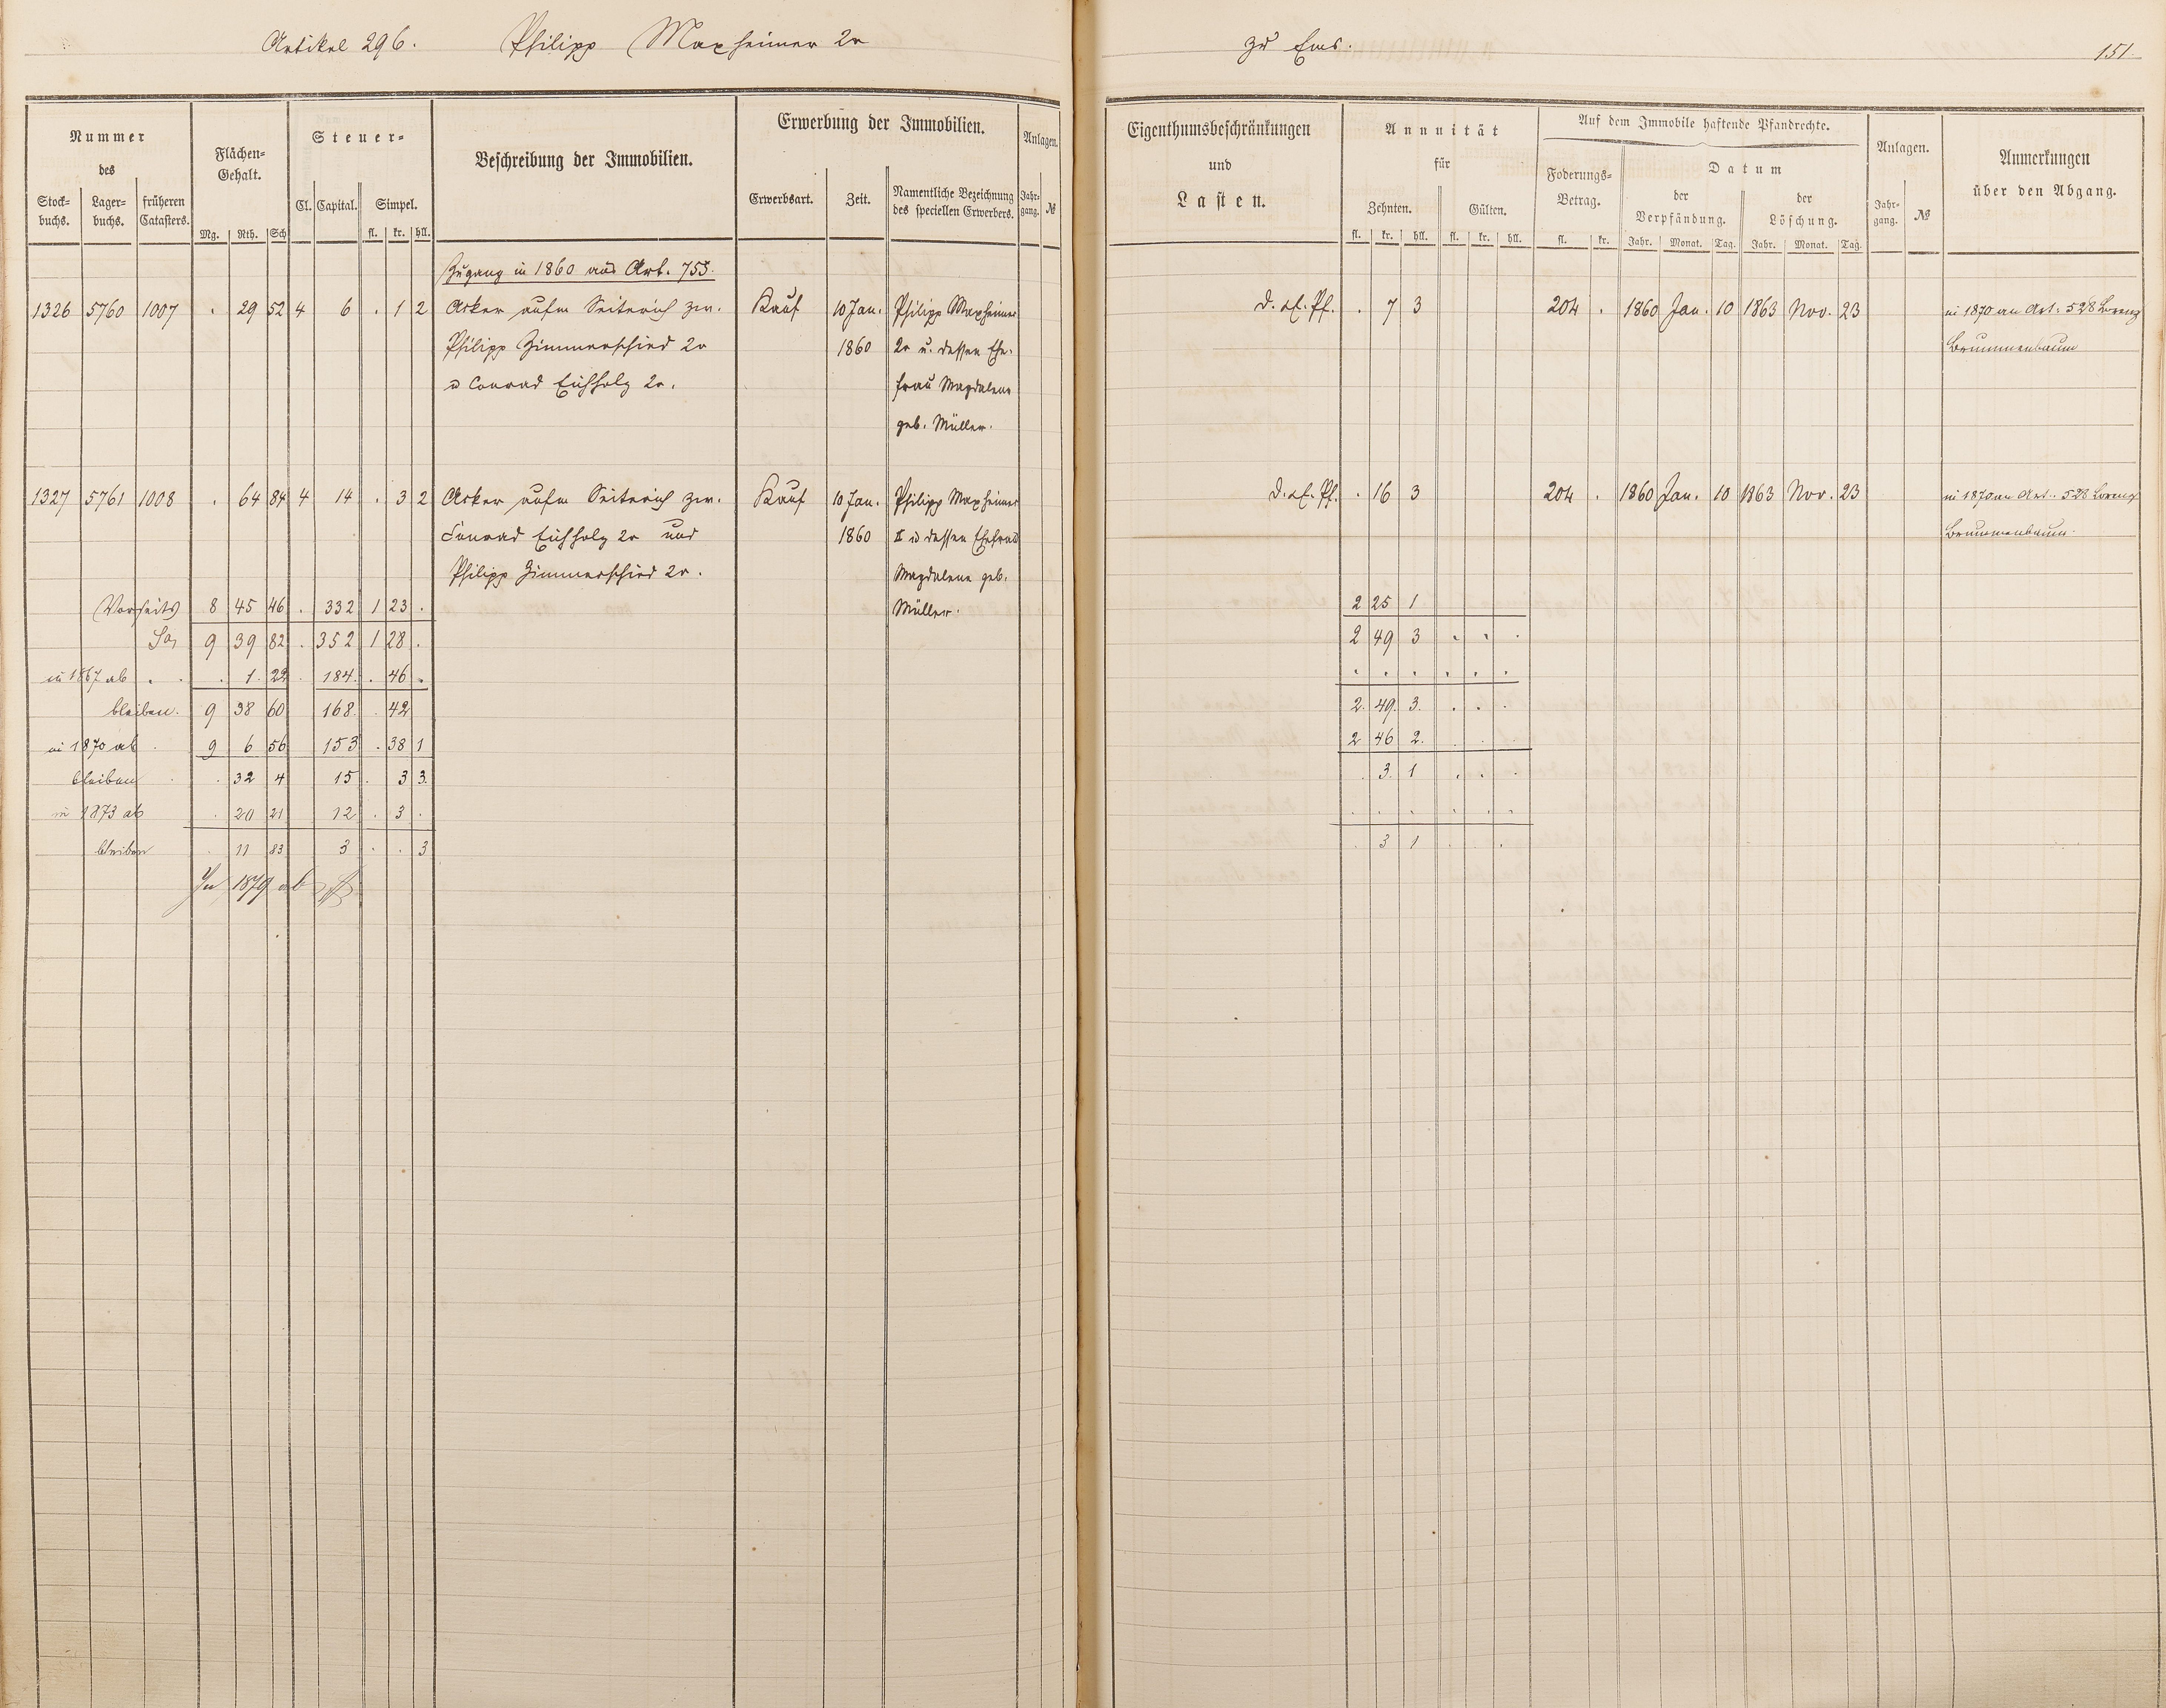 Artikel 296. Philipp Maxheimer 2r
zu Ems. 151
Nummer
des
Stock-buchs. Lager-buchs. früheren Catasters.
Flächen-Gehalt.
Mg. Rth. Sch
Steuer-
Cl. Capital. Simpel.
fl. kr. hll.
Beschreibung der Immobilien.
Erwerbung der Immobilien.
Erwerbsart. Zeit. Namentliche Bezeichnung des speciellen Erwerbers.
Anlagen.
Jahr-gang. №
Eigenthumsbeschränkungen
und
Lasten.
Annuität
für
Zehnten. Gülten.
fl. kr. hll. fl. kr. hll.
Auf dem Immobile haftende Pfandrechte.
Foderungs-Betrag.
fl. kr.
Datum
der Verpfändung. der Löschung.
Jahr. Monat. Tag. Jahr. Monat. Tag.
Anlagen.
Jahr-gang. №
Anmerkungen
über den Abgang.
Zugang in 1860 aus Art. 755.
1326 5760 1007 . 29 52 4 6 . 1 2 Acker aufm Seiterich zw. Kauf 10 Jan. Philipp Maxheimer
Philipp Zimmerschied 2r 1860 2r u. dessen Ehe-
u Conrad Eichholz 2r. frau Magdalene
geb. Müller.
1327 5761 1008 . 64 84 4 14 . 3 2 Acker aufm Seiterich zw. Kauf 10 Jan. Philipp Maxheimer
Conrad Eichholz 2r und 1860 II u dessen Ehefrau
Philipp Zimmerschied 2r. Magdalene geb.
Müller.
Vorseits 8 45 46 . 332 1 23 .
Sa 9 39 82 . 352 1 28 .
in 1867 ab . . . 1. 22 . 184. . 46 .
bleiben. 9 38 60 168. . 42
in 1870 ab . 9 6 56 153 . 38 1
bleiben . . 32 4 15 . 3 3.
in 1873 ab . 20 21 12 . 3 .
bleiben . 11 83 3 . . 3
In 1879 ab
. 7 3 204 . 1860 Jan. 10 1863 Nov. 23 in 1870 an Art. 528 Lorenz
Brummenbaum
. 16 3 204 . 1860 Jan. 10 1863 Nov. 23 in 1870 an Art. 528 Lorenz
Brummenbaum.
2 25 1
2 49 3 . . .
. . . . . .
2. 49. 3. . . .
2 46 2. . . .
. 3. 1 . . .
. . . . . .
. 3 1 . . .